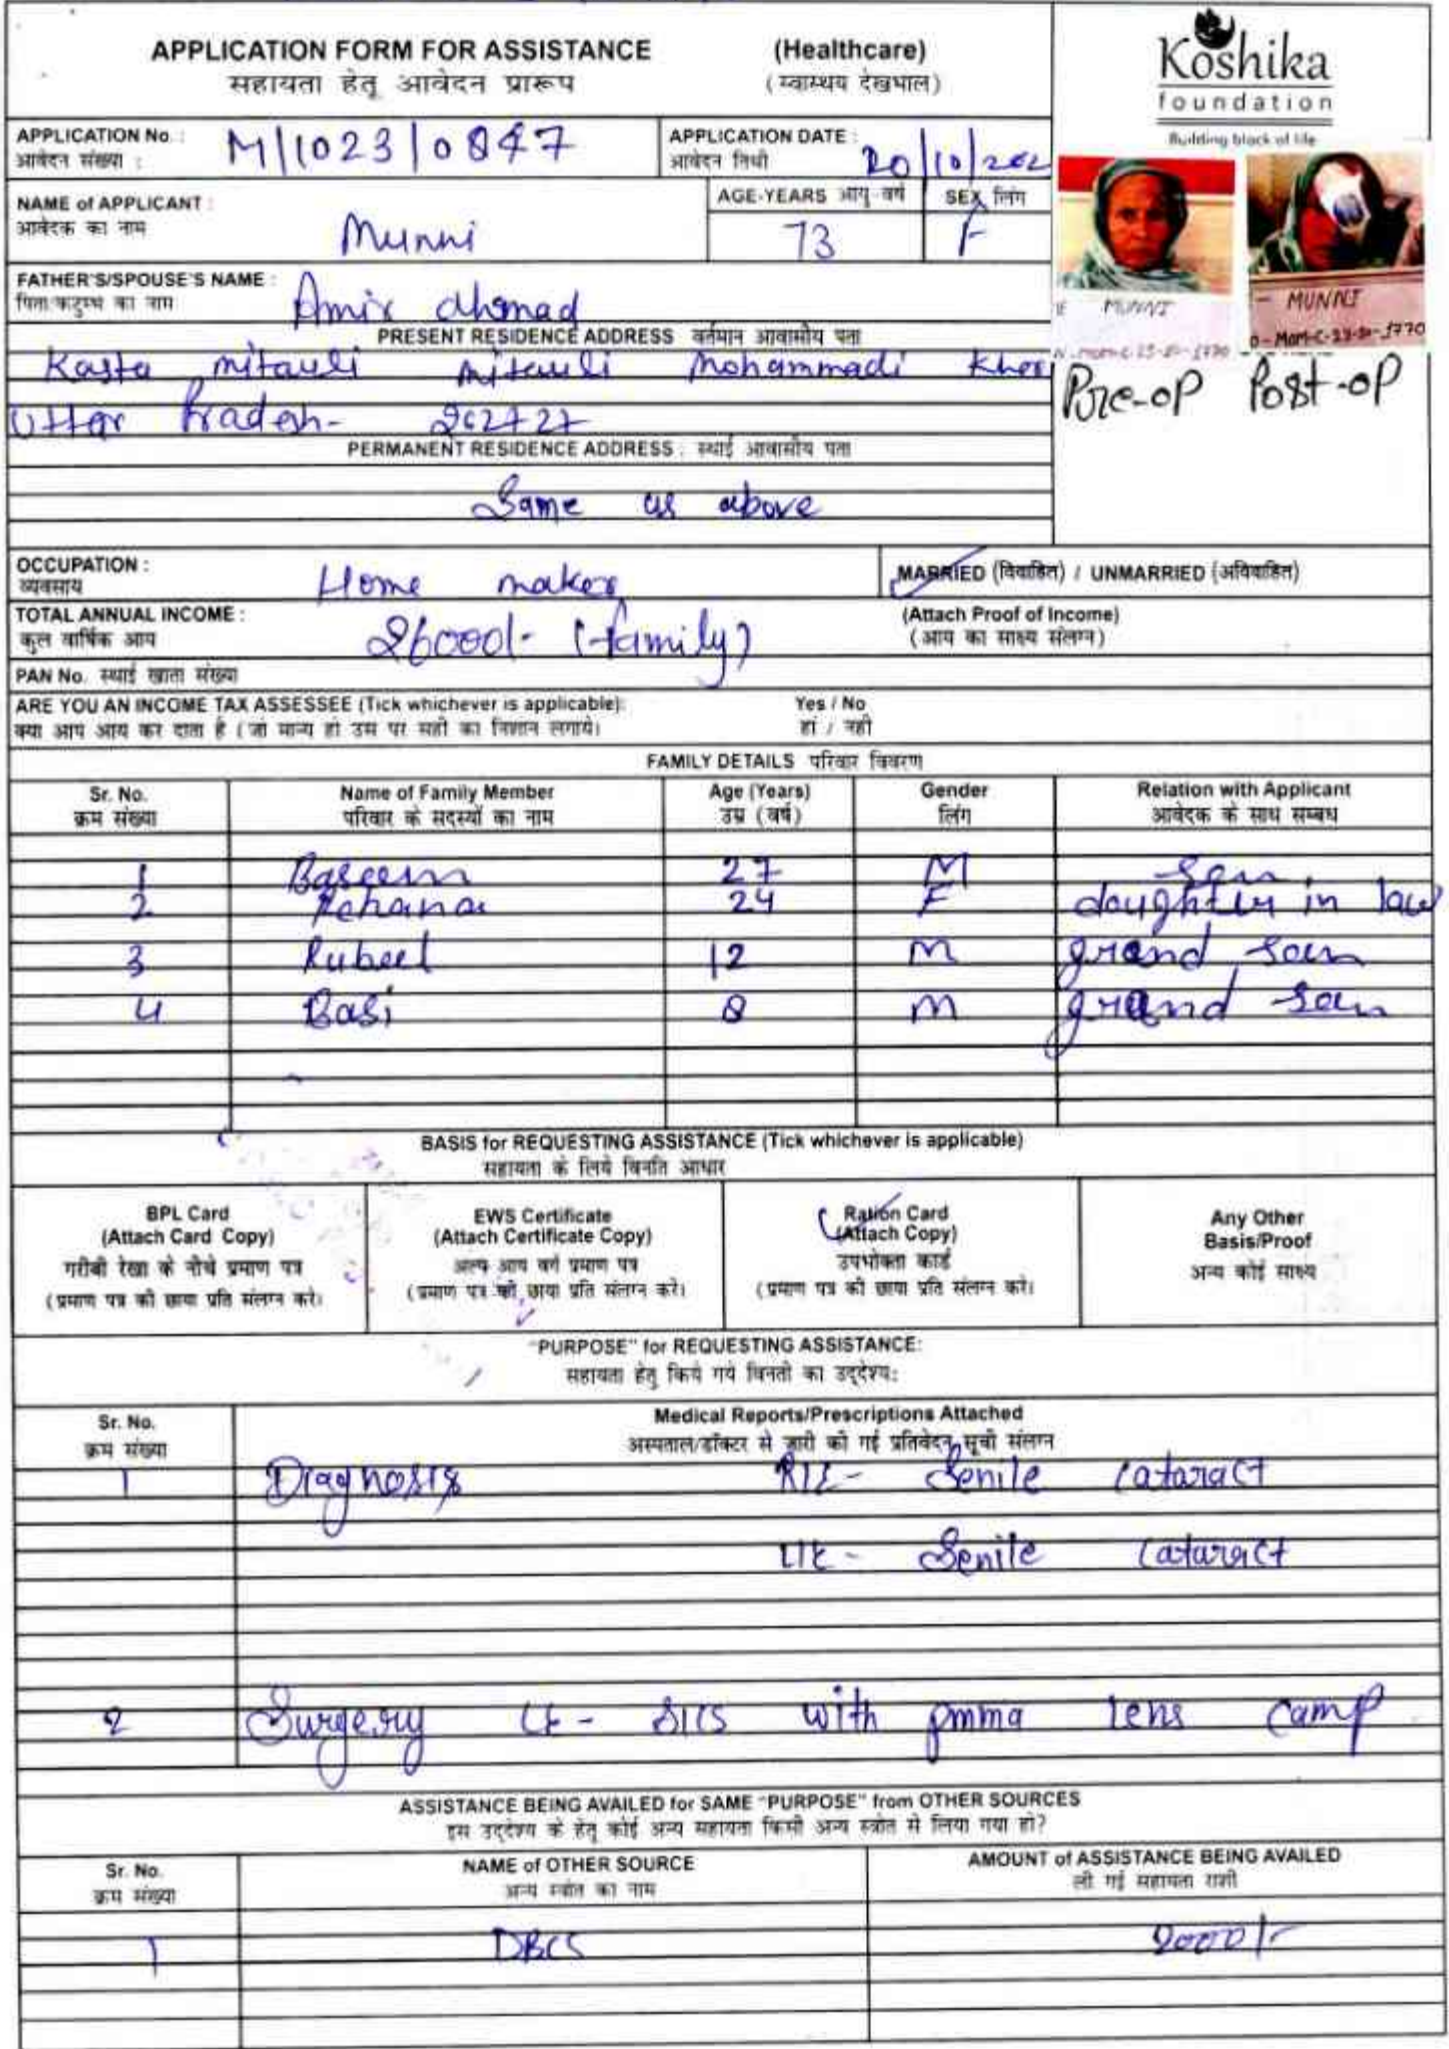 APPLICATION FORM FOR ASSISTANCE (Healthcare)
सहायता हेतू आवेदन प्रारूप (स्वास्थय देखभाल)
Koshika
foundation
Building block of life
APPLICATION No. : M/1023/0847
आवेदन संख्या :
APPLICATION DATE : 20/10/202
आवेदन तिथी
NAME of APPLICANT : Munni
आवेदक का नाम
AGE-YEARS आयु-वर्ष 73
SEX लिंग F
FATHER'S/SPOUSE'S NAME : Amir Ahmad
पिता/कटुम्ब का नाम
MUNNI
MUNNI
Pre-op Post-op
PRESENT RESIDENCE ADDRESS वर्तमान आवासीय पता
Kasta mitauli mitauli Mohammadi Kheri
Uttar Pradesh- 262727
PERMANENT RESIDENCE ADDRESS : स्थाई आवासीय पता
Same as above
OCCUPATION : Home maker
व्यवसाय
MARRIED (विवाहित) / UNMARRIED (अविवाहित)
TOTAL ANNUAL INCOME : 26000/- (family)
कुल वार्षिक आय
(Attach Proof of Income)
(आय का साक्ष्य संलग्न)
PAN No. स्थाई खाता संख्या
ARE YOU AN INCOME TAX ASSESSEE (Tick whichever is applicable): Yes / No
क्या आप आय कर दाता है (जो मान्य हो उस पर सही का निशान लगाये। हां / नही
FAMILY DETAILS परिवार विवरण
Sr. No. Name of Family Member Age (Years) Gender Relation with Applicant
क्रम संख्या परिवार के सदस्यों का नाम उम्र (वर्ष) लिंग आवेदक के साथ सम्बध
1 Baseem 27 M Son
2 Rehana 24 F daughter in law
3 Rubeel 12 M grand son
4 Basi 8 M grand son
BASIS for REQUESTING ASSISTANCE (Tick whichever is applicable)
सहायता के लिये विनति आधार
BPL Card
(Attach Card Copy)
गरीबी रेखा के नीचे प्रमाण पत्र
(प्रमाण पत्र की छाया प्रति संलग्न करे।
EWS Certificate
(Attach Certificate Copy)
अल्प आय वर्ग प्रमाण पत्र
(प्रमाण पत्र की छाया प्रति संलग्न करे।
Ration Card
(Attach Copy)
उपभोक्ता कार्ड
(प्रमाण पत्र की छाया प्रति संलग्न करे।
Any Other
Basis/Proof
अन्य कोई साक्ष्य
"PURPOSE" for REQUESTING ASSISTANCE:
सहायता हेतु किये गये विनती का उद्देश्य:
Sr. No. Medical Reports/Prescriptions Attached
क्रम संख्या अस्पताल/डॉक्टर से जारी की गई प्रतिवेदन सूची संलग्न
1 Diagnosis R/E- Senile Cataract
L/E- Senile Cataract
2 Surgery LE- SICS with pmma lens camp
ASSISTANCE BEING AVAILED for SAME "PURPOSE" from OTHER SOURCES
इस उद्देश्य के हेतू कोई अन्य सहायता किसी अन्य स्त्रोत से लिया गया हो?
Sr. No. NAME of OTHER SOURCE AMOUNT of ASSISTANCE BEING AVAILED
क्रम संख्या अन्य स्त्रोत का नाम ली गई सहायता राशी
1 DBCS 2000/-